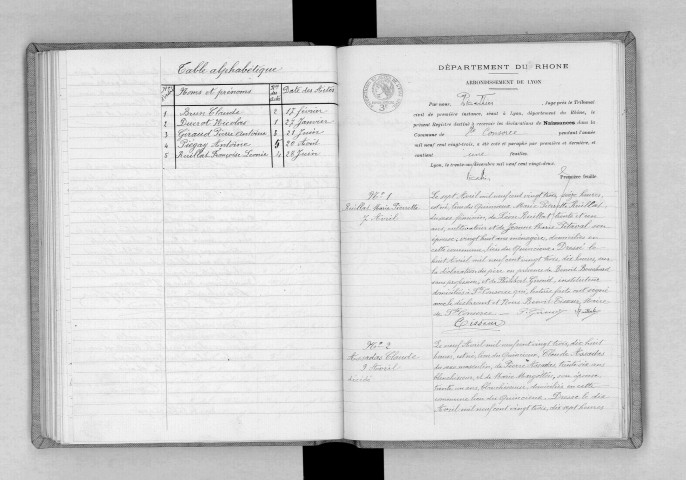 Table alphabétique
Noms et prénoms Date des Actes
1 Brun Claude 2 17 février
2 Ducrot Nicolas 1 27 Janvier
3 Giraud Pierre Antoine 3 21 Juin
4 Piégay Antoine 5 20 Août
5 Ruillat Françoise Leonie 4 28 Juin
DÉPARTEMENT DU RHONE
ARRONDISSEMENT DE LYON
Par nous, Juge près le Tribunal
civil de première instance, séant à Lyon, département du Rhône, le
présent Registre destiné à recevoir les déclarations de Naissances dans la
Commune de Ste Consorce pendant l'année
mil neuf cent vingt-trois, a été coté et paraphé par première et dernière, et
contient une feuillets.
Lyon, le trente-un décembre mil neuf cent vingt-deux.
Première feuille.
No 1
Ruillat Marie Pierrette
7 Avril
Le sept Avril mil neuf cent vingt trois, onze heures,
est née, lieu du Quincieux, Marie Pierrette Ruillat,
du sexe féminin, de Pierre Ruillat, trente et un
ans, cultivateur et de Jeanne Marie Pitaval son
épouse, vingt huit ans, ménagère, domiciliés en
cette commune lieu du Quincieux. Dressé le
huit Avril mil neuf cent vingt trois, dix heures, sur
la déclaration du père en présence de Benoit Bouchard
sans profession, et de institutrice
domiciliés à Ste Consorce qui, lecture faite ont signé
avec le déclarant et Nous Tisseur, Maire
de Ste Consorce
Tisseur
No 2
Claude
9 Avril
Le neuf Avril mil neuf cent vingt trois, dix huit
heures, est né, lieu du Quincieux, Claude
du sexe masculin, de Pierre trente six ans
blanchisseur, et de Marie son épouse
trente un ans, blanchisseuse, domiciliés en cette
commune lieu du Quincieux. Dressé le dix
Avril mil neuf cent vingt trois, dix sept heures